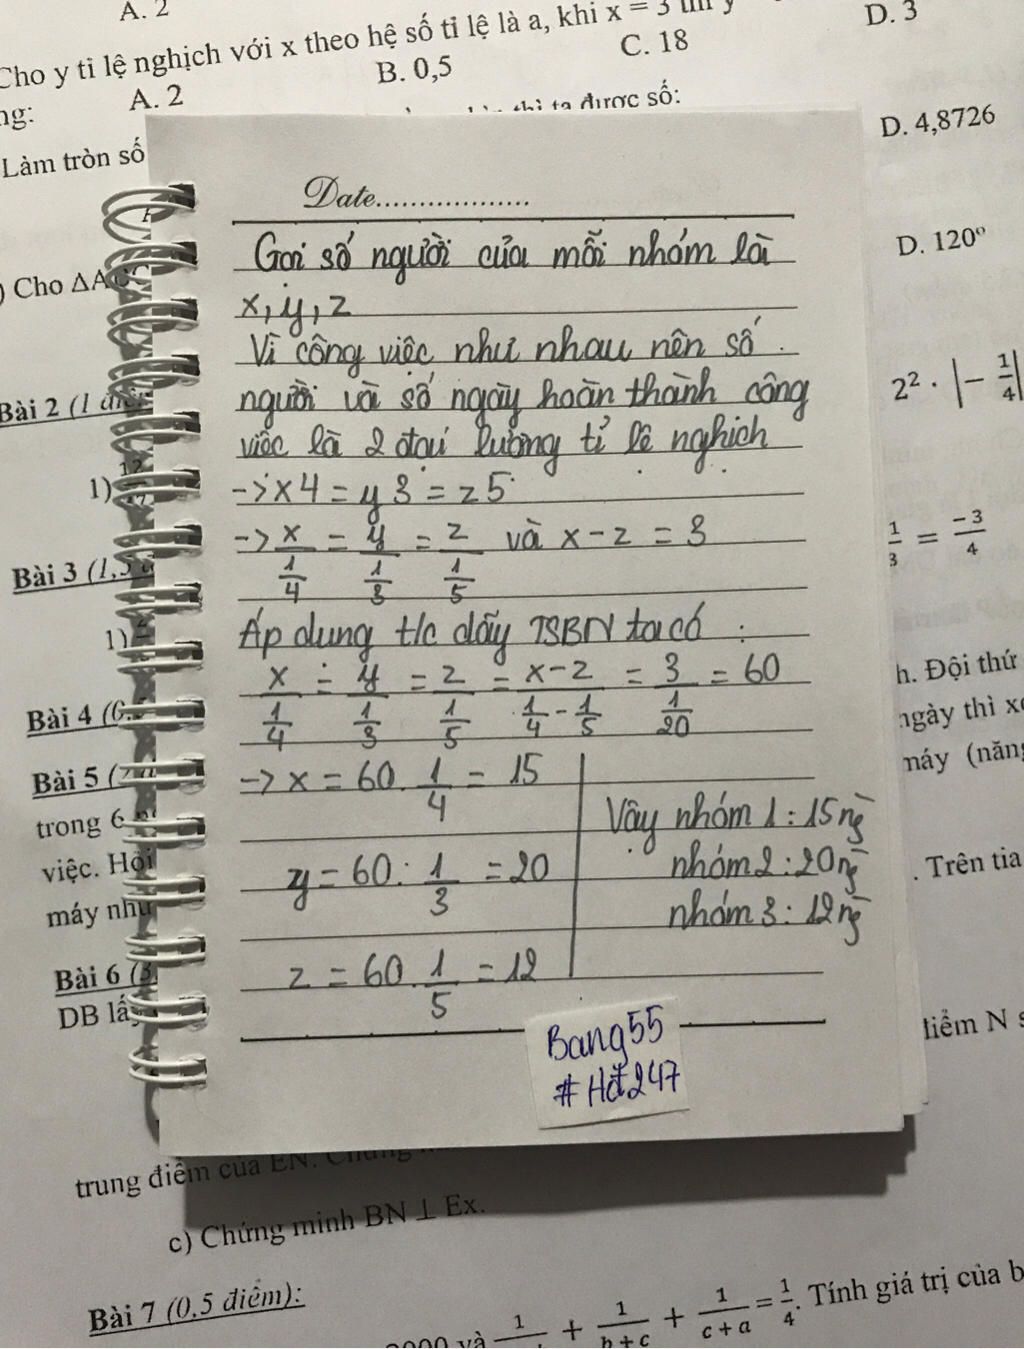 A. 2
Cho y tỉ lệ nghịch với x theo hệ số tỉ lệ là a, khi x = 3
D. 3
ng:
A. 2
B. 0,5
C. 18
thì ta được số:
Làm tròn số
D. 4,8726
Date
) Cho ΔA
D. 120°
Gọi số người của mỗi nhóm là
x, y, z
Vì công việc như nhau nên số
người và số ngày hoàn thành công
việc là 2 đại lượng tỉ lệ nghịch
-> x4 = y3 = z5
-> x/(1/4) = y/(1/3) = z/(1/5) và x - z = 3
Áp dụng t/c dãy TSBN ta có :
x/(1/4) = y/(1/3) = z/(1/5) = (x-z)/(1/4 - 1/5) = 3/(1/20) = 60
-> x = 60 . 1/4 = 15
y = 60 . 1/3 = 20
z = 60 . 1/5 = 12
Vậy nhóm 1 : 15 ng`
nhóm 2 : 20 ng`
nhóm 3 : 12 ng`
Bang55
#Hđ247
Bài 2 (1
2² . |- 1/4|
1)
Bài 3 (1,5
1/3 = -3/4
1)
Bài 4 (
h. Đội thứ
ngày thì
Bài 5 (
máy (năng
trong 6
việc. Hỏi
. Trên tia
máy như
Bài 6 (3
DB lấy
điểm N
trung điểm của EN.
c) Chứng minh BN ⊥ Ex.
Bài 7 (0.5 điểm):
và 1/ + 1/(b+c) + 1/(c+a) = 1/4. Tính giá trị của b